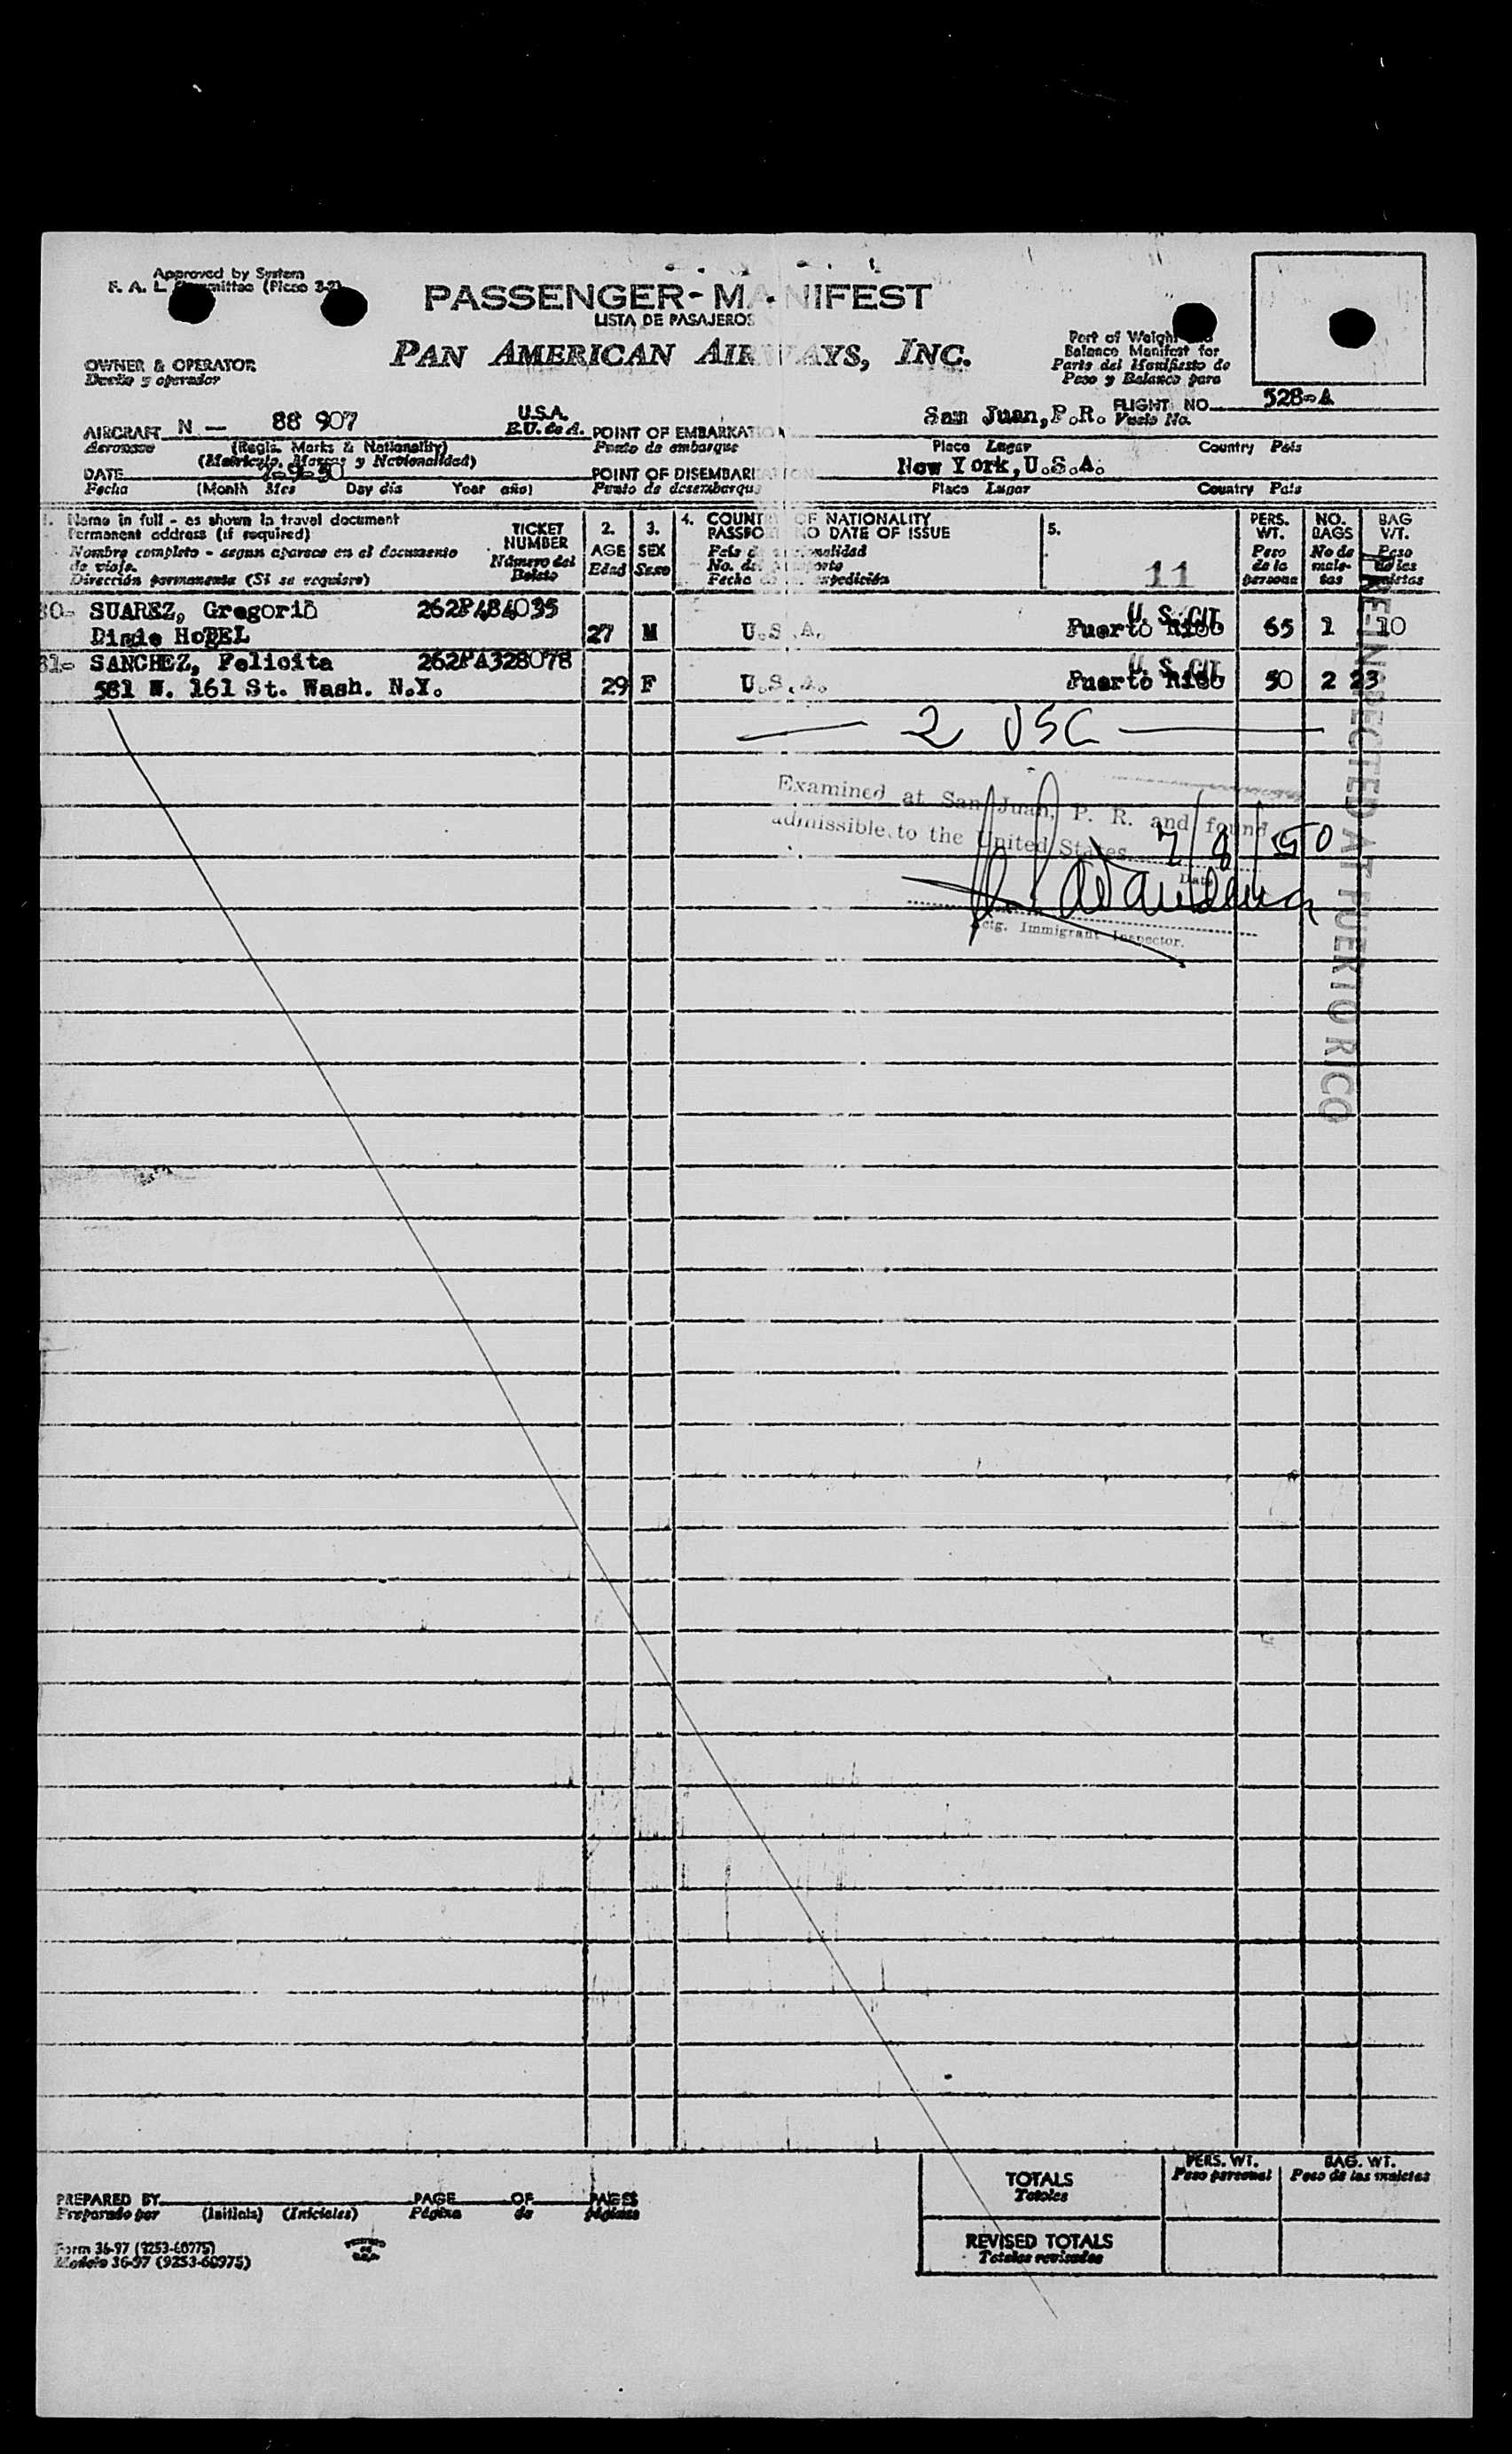 Approved by System
F. A. L. (Piece 3-2)
PASSENGER-MANIFEST
LISTA DE PASAJEROS
PAN AMERICAN AIRWAYS, INC.
OWNER & OPERATOR
Dueño y operador
Part of Weight
Balance Manifest for
Parte del Manifiesto de
Peso y Balance para
FLIGHT NO. 528-A
Vuelo No.
AIRCRAFT N — 88 907 U.S.A.
E.U. de A.
Aeronave (Regis. Marks & Nationality)
(Matricula, Marcas y Nacionalidad)
POINT OF EMBARKATION San Juan, P.R.
Punto de embarque Place Lugar Country País
DATE
Fecha (Month Mes Day día Year año)
POINT OF DISEMBARKATION New York, U.S.A.
Punto de desembarque Place Lugar Country País
1. Name in full - as shown in travel document
Permanent address (if required)
Nombre completo - segun aparece en el documento
de viaje.
Dirección permanente (Si se requiere)
TICKET
NUMBER
Número del
Boleto
2.
AGE
Edad
3.
SEX
Sexo
4. COUNTRY OF NATIONALITY
PASSPORT NO DATE OF ISSUE
País de nacionalidad
No. del pasaporte
Fecha de expedición
5.
11
PERS.
WT.
Peso
de la
persona
NO.
BAGS
No de
male-
tas
BAG
WT.
Peso
de las
maletas
30- SUAREZ, Gregorio 262P484035
HOTEL 27 M U.S.A. Puerto Rico U. S. CIT 65 1 10
31- SANCHEZ, Felicita 262PA328078
581 W. 161 St. Wash. N.Y. 29 F U.S.A. Puerto Rico U. S. CIT 50 2 23
2 USC
Examined at San Juan, P. R. and found
admissible to the United States 7/8/50
Date
Actg. Immigrant Inspector.
PREINSPECTED AT PUERTO RICO
TOTALS
Totales
PERS. WT.
Peso personal
BAG. WT.
Peso de las maletas
REVISED TOTALS
Totales revisados
PREPARED BY PAGE OF PAGES
Preparado por (Initials) (Iniciales) Página de páginas
Form 36-97 (9253-60975)
Modelo 36-97 (9253-60975)